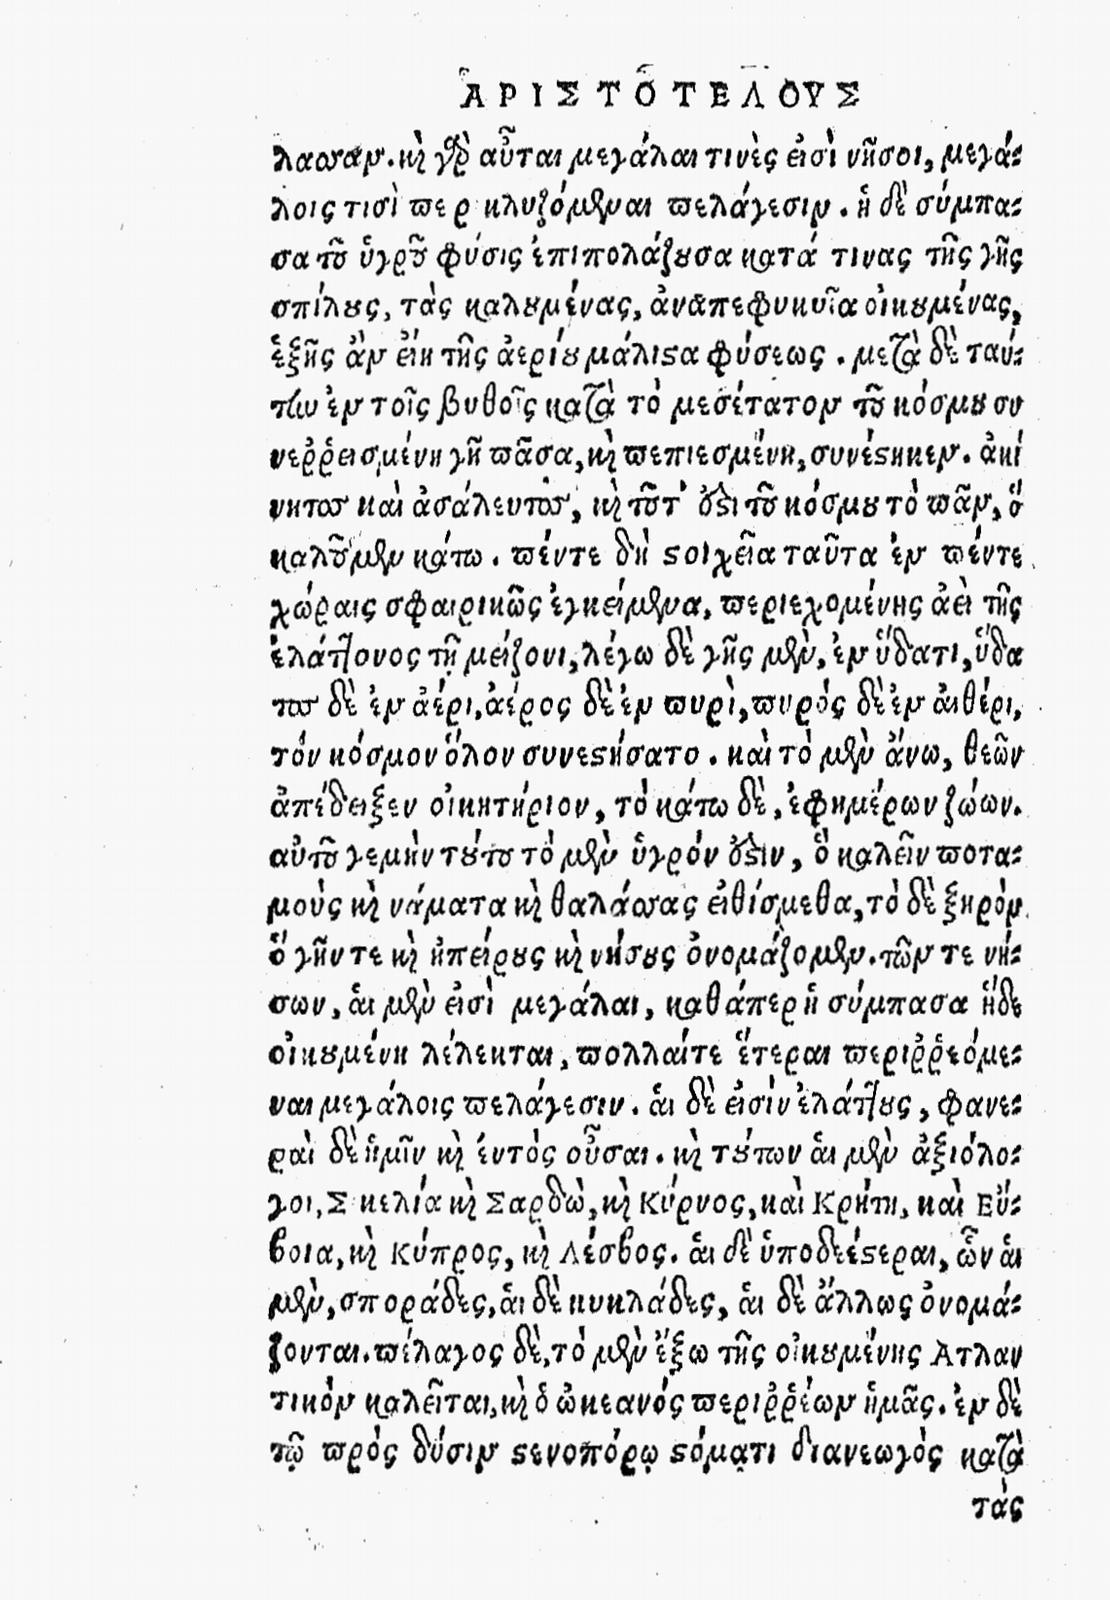 ἈΡΙΣΤΟΤΈΛΟΥΣ
λασσαν. καὶ γὰρ αὗται μεγάλαι τινὲς εἰσὶ νῆσοι, μεγά-
λοις τισὶ περικλυζόμεναι πελάγεσιν. ἡ δὲ σύμπα-
σα τοῦ ὑγροῦ φύσις ἐπιπολάζουσα κατά τινας τῆς γῆς
σπίλους, τὰς καλουμένας, ἀναπεφυκυῖα οἰκουμένας,
ἑξῆς ἂν εἴη τῆς ἀερίου μάλιστα φύσεως. μετὰ δὲ ταύ-
την ἐν τοῖς βυθοῖς κατὰ τὸ μεσέτατον τοῦ κόσμου συ
νερῤεισμένη γῆ πᾶσα, καὶ πεπιεσμένη, συνέστηκεν. ἀκί
νητος καὶ ἀσάλευτος, καὶ τοῦτ' ἐστι τοῦ κόσμου τὸ πᾶν, ὅ
καλοῦμεν κάτω. πέντε δὴ στοιχεῖα ταῦτα ἐν πέντε
χώραις σφαιρικῶς ἐγκείμενα, περιεχομένης ἀεὶ τῆς
ἐλάττονος τῇ μείζονι, λέγω δὲ γῆς μὲν, ἐν ὕδατι, ὕδα
τος δὲ ἐν ἀέρι, ἀέρος δὲ ἐν πυρὶ, πυρός δὲ ἐν αἰθέρι,
τόν κόσμον ὅλον συνεστήσατο. καὶ τὸ μὲν ἄνω, θεῶν
ἀπέδειξεν οἰκητήριον, τὸ κάτω δὲ, ἐφημέρων ζώων.
αὐτοῦ γεμὴν τούτου τὸ μὲν ὑγρόν ἐστιν, ὃ καλεῖν ποτα-
μοὺς καὶ νάματα καὶ θαλάσσας εἰθίσμεθα, τὸ δὲ ξηρὸν
ὃ γῆν τε καὶ ἠπείρους καὶ νήσους ὀνομάζομεν. τῶν τε νή-
σων, αἱ μὲν εἰσὶ μεγάλαι, καθάπερ ἡ σύμπασα ἥδε
οἰκουμένη λέλεκται, πολλαίτε ἕτεραι περιῤῥεόμε-
ναι μεγάλοις πελάγεσιν. αἱ δὲ εἰσὶν ἐλάττους, φανε-
ραὶ δὲ ἡμῖν καὶ ἐντὸς οὖσαι. καὶ τούτων αἱ μὲν ἀξιόλο-
γοι, Σκελία καὶ Σαρδὼ, καὶ Κύρνος, καὶ Κρήτη, καὶ Εὔ-
βοια, καὶ Κύπρος, καὶ Λέσβος. αἱ δὲ ὑποδεέστεραι, ὧν αἱ
μὲν, σποράδες, αἱ δὲ κυκλάδες, αἱ δὲ ἄλλως ὀνομά-
ζονται. πέλαγος δὲ, τὸ μὲν ἔξω τῆς οἰκουμένης Ἀτλαν
τικόν καλεῖται, καὶ ὁ ὠκεανός περιῤῥέων ἡμᾶς. ἐν δὲ
τῷ πρός δύσιν στενοπόρῳ στόματι διανεωγὸς κατὰ
τάς